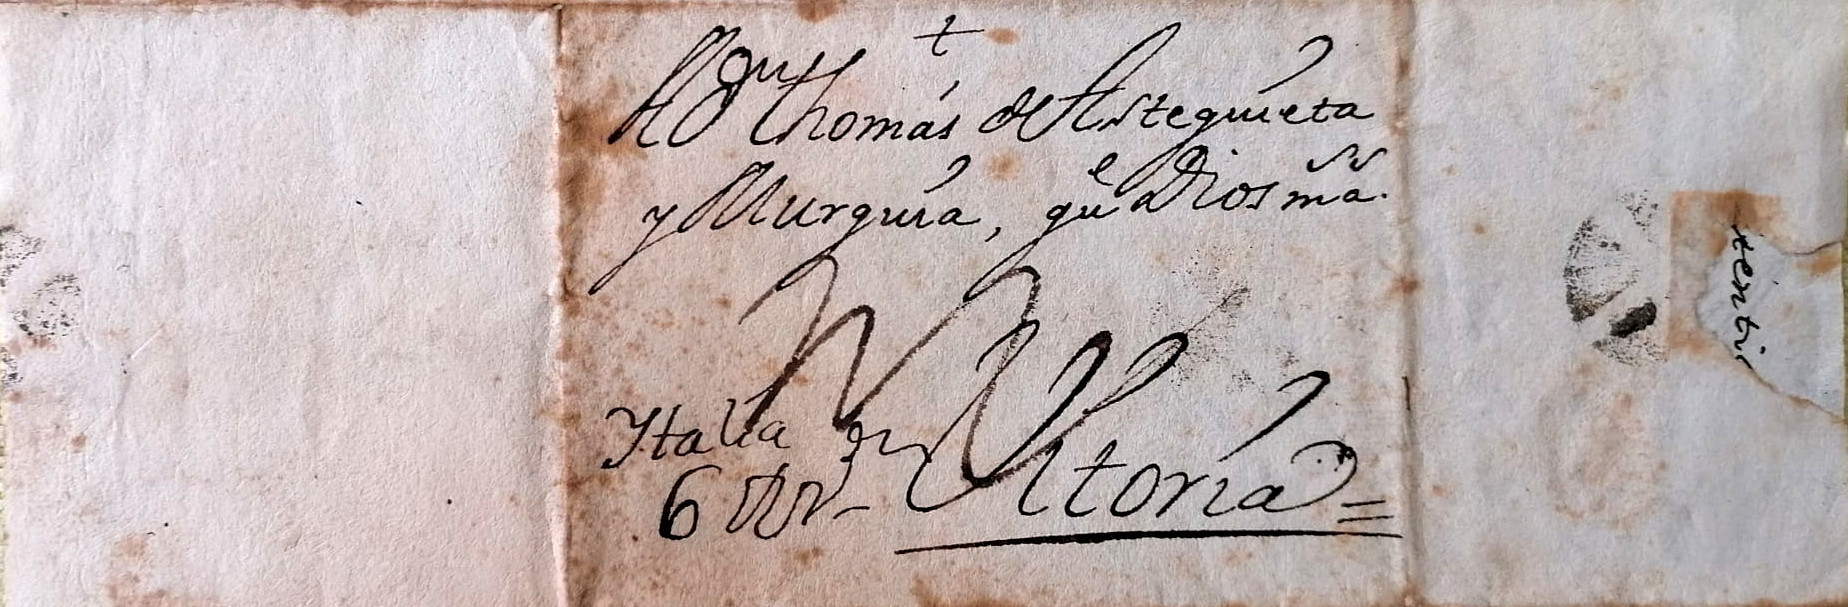 +
A Dn Thomás de Asteguieta
y Murguía, gue Dios ms as.
Ytalia en Vitoria =
6
tentic